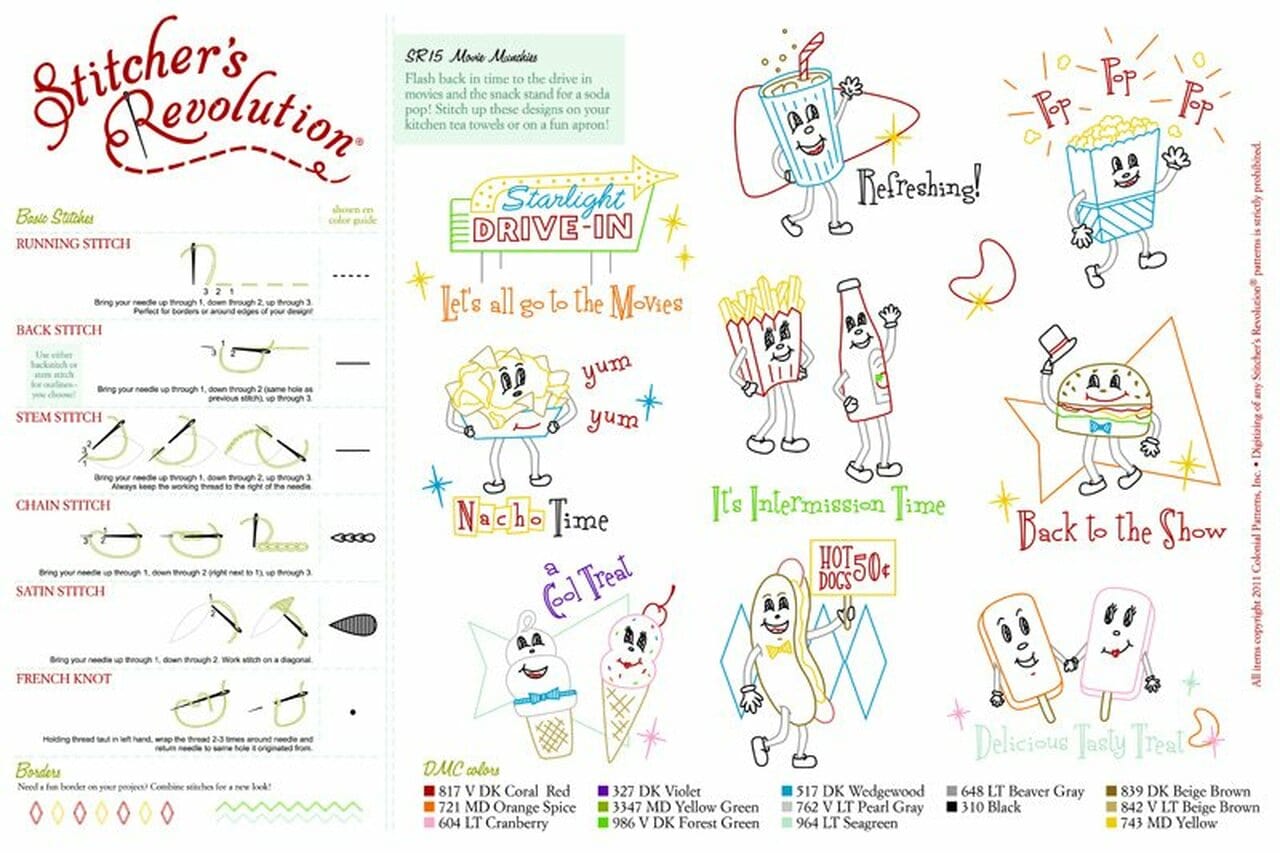 Stitcher's
Revolution®
Basic Stitches
shown on
color guide
RUNNING STITCH
3 2 1
Bring your needle up through 1, down through 2, up through 3.
Perfect for borders or around edges of your design!
BACK STITCH
Use either
backstitch or
stem stitch
for outlines-
you choose!
3 1 2
Bring your needle up through 1, down through 2 (same hole as
previous stitch), up through 3.
STEM STITCH
2
3
1
Bring your needle up through 1, down through 2, up through 3.
Always keep the working thread to the right of the needle.
CHAIN STITCH
3 1 2
Bring your needle up through 1, down through 2 (right next to 1), up through 3.
SATIN STITCH
1
2
Bring your needle up through 1, down through 2. Work stitch on a diagonal.
FRENCH KNOT
Holding thread taut in left hand, wrap the thread 2-3 times around needle and
return needle to same hole it originated from.
Borders
Need a fun border on your project? Combine stitches for a new look!
SR15 Movie Munchies
Flash back in time to the drive in
movies and the snack stand for a soda
pop! Stitch up these designs on your
kitchen tea towels or on a fun apron!
Starlight
DRIVE-IN
Let's all go to the Movies
Refreshing!
Pop
Pop
Pop
yum
yum
Nacho Time
It's Intermission Time
Back to the Show
a
Cool Treat
HOT
DOGS 50¢
Delicious Tasty Treat
DMC colors
817 V DK Coral Red
721 MD Orange Spice
604 LT Cranberry
327 DK Violet
3347 MD Yellow Green
986 V DK Forest Green
517 DK Wedgewood
762 V LT Pearl Gray
964 LT Seagreen
648 LT Beaver Gray
310 Black
839 DK Beige Brown
842 V LT Beige Brown
743 MD Yellow
All items copyright 2011 Colonial Patterns, Inc. • Digitizing of any Stitcher's Revolution® patterns is strictly prohibited.